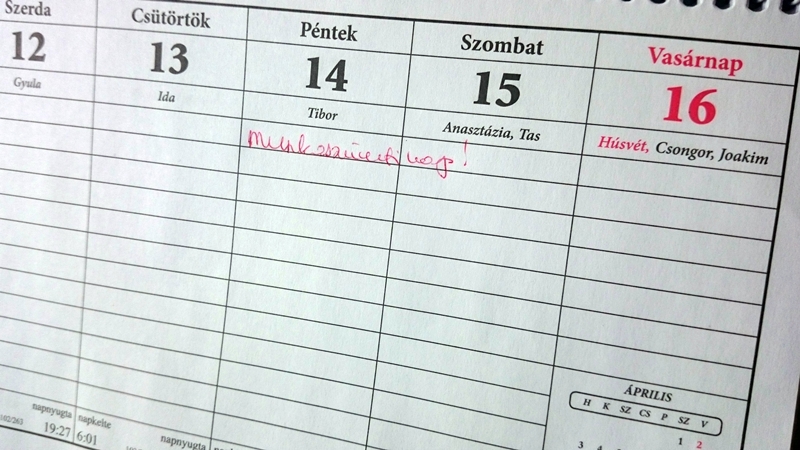 Szerda Csütörtök Péntek Szombat Vasárnap
12 13 14 15 16
Gyula Ida Tibor Anasztázia, Tas Húsvét, Csongor, Joakim
Munkaszüneti nap!
ÁPRILIS
H K SZ CS P SZ V
1 2
napnyugta napkelte napnyugta
102/263 19:27 6:01